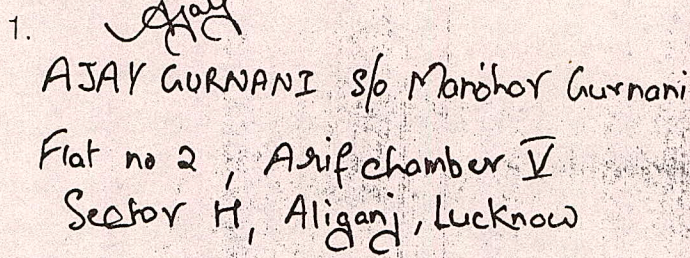 1. Ajay
AJAY GURNANI s/o Manohor Gurnani
Flat no 2, Arif chamber V
Sector H, Aliganj, Lucknow